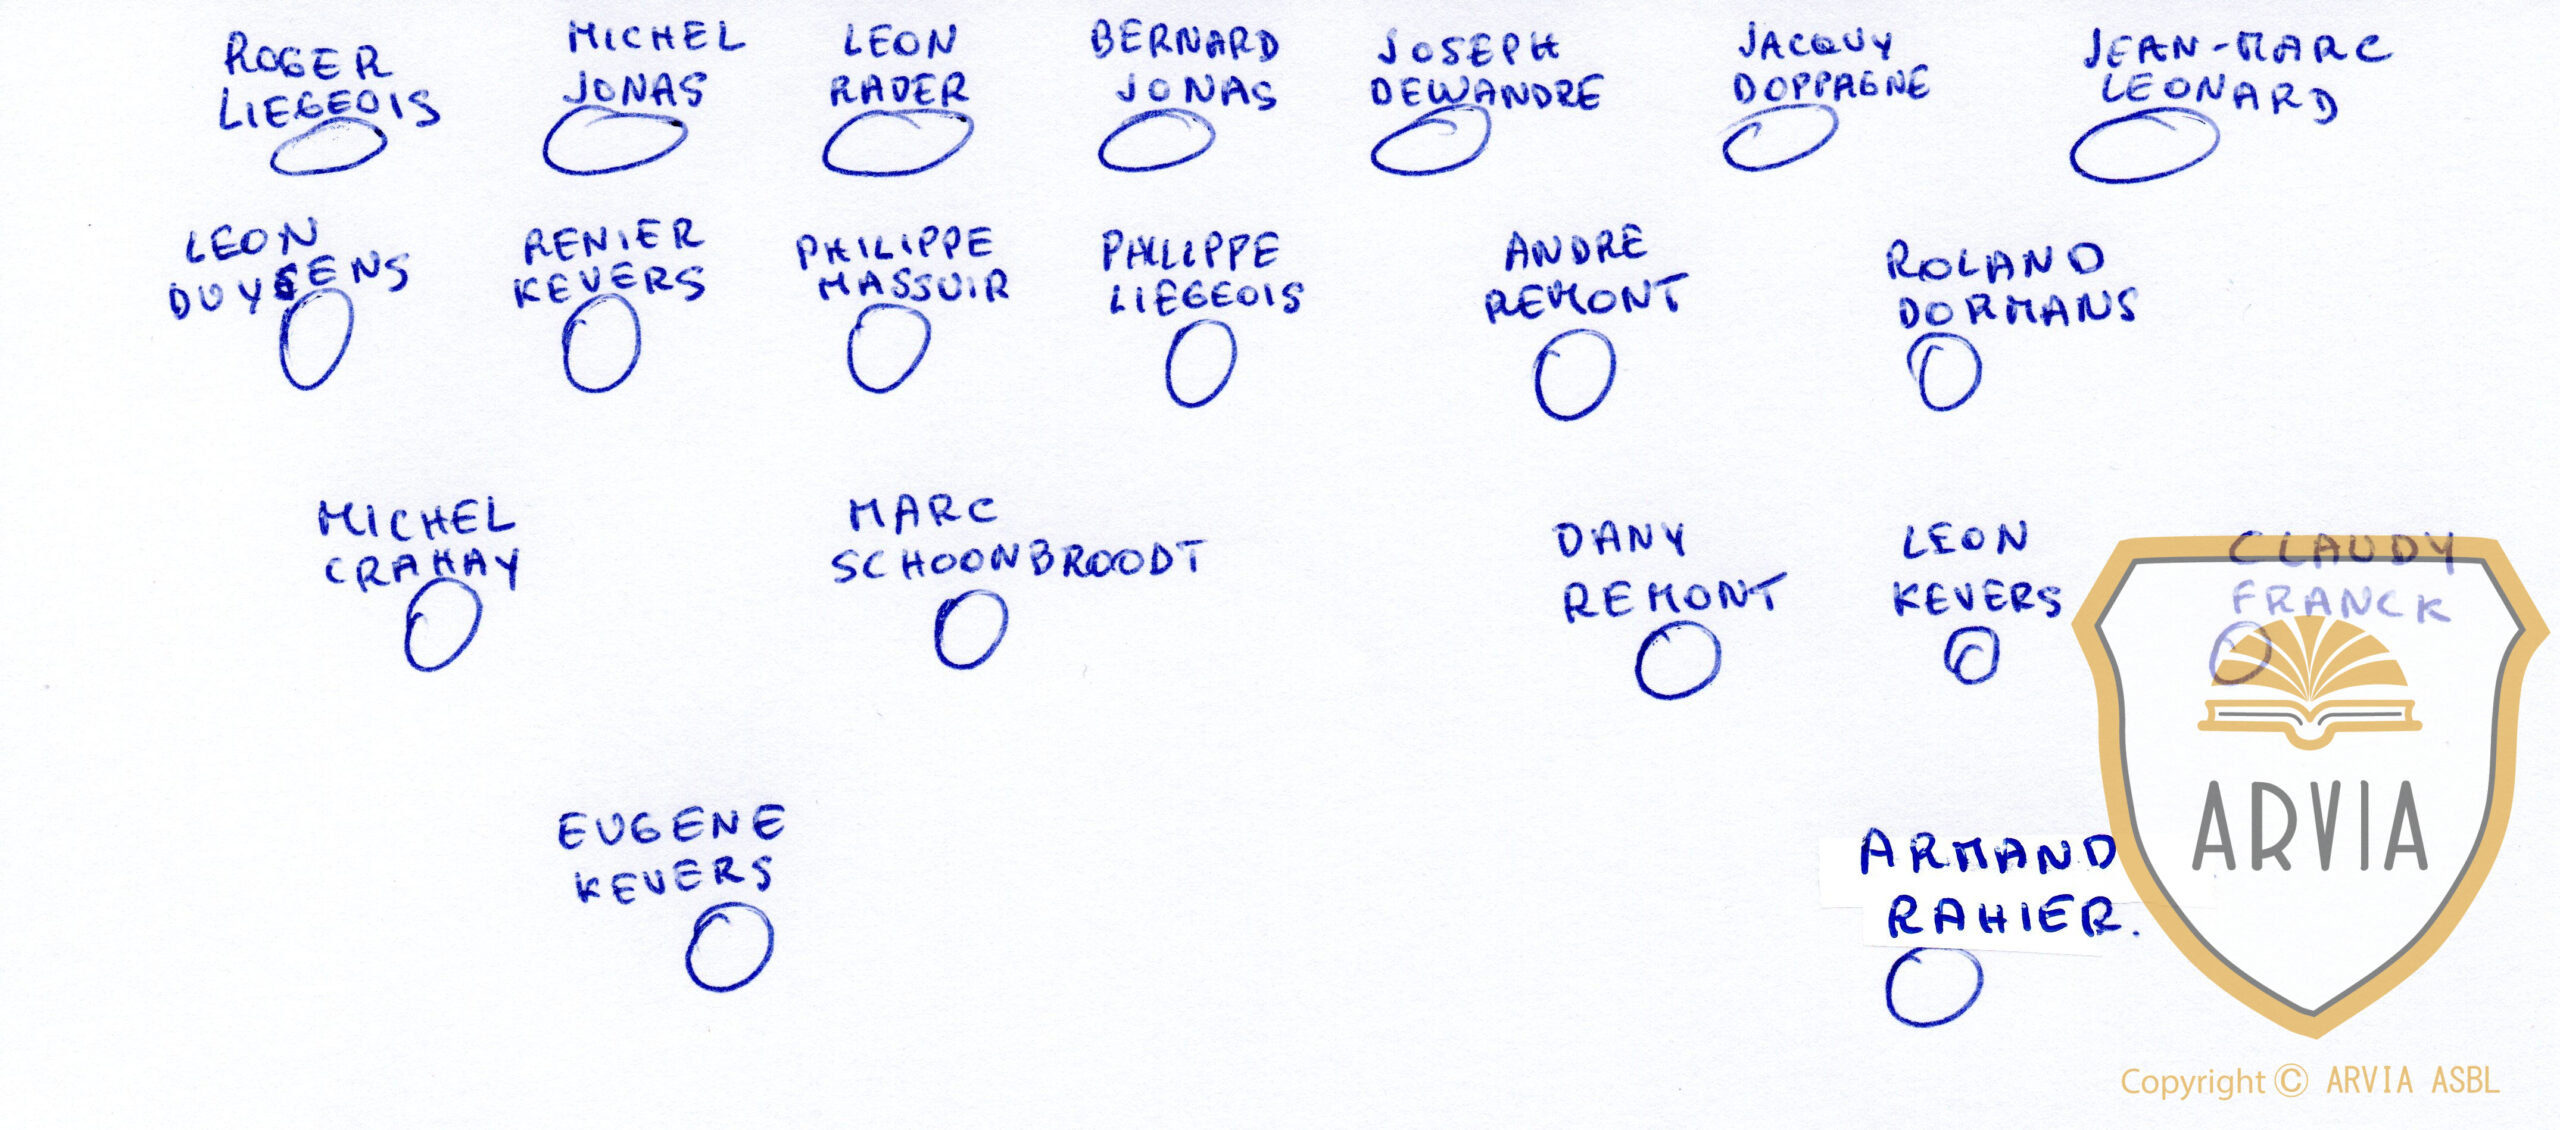 ROGER
LIEGEOIS
MICHEL
JONAS
LEON
RADER
BERNARD
JONAS
JOSEPH
DEWANDRE
JACQUY
DOPPAGNE
JEAN-MARC
LEONARD
LEON
DUYSENS
RENIER
KEVERS
PHILIPPE
MASSUIR
PHILIPPE
LIEGEOIS
ANDRE
REMONT
ROLAND
DORMANS
MICHEL
CRAHAY
MARC
SCHOONBROODT
DANY
REMONT
LEON
KEVERS
CLAUDY
FRANCK
EUGENE
KEVERS
ARMAND
RAHIER.
ARVIA
Copyright © ARVIA ASBL